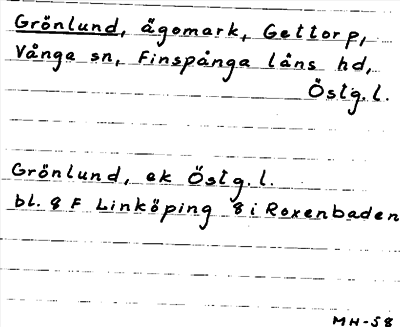 Grönlund, ägomark, Gettorp,
Vånga sn, Finspånga läns hd,
Östg.l.
Grönlund, ek Östg.l.
bl. 8 F Linköping 8 i Roxenbaden
MH-58